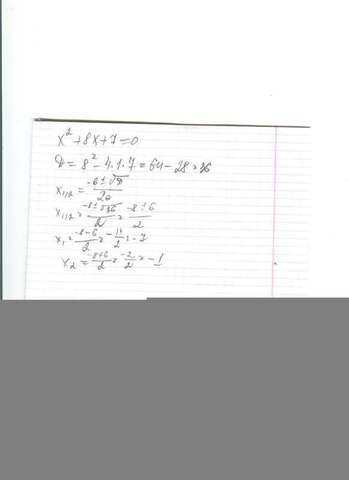 x² + 8x + 7 = 0
D = 8² - 4·1·7 = 64 - 28 = 36
x₁,₂ = (-b ± √D)/2a
x₁,₂ = (-8 ± √36)/2 = (-8 ± 6)/2
x₁ = (-8-6)/2 = -14/2 = -7
x₂ = (-8+6)/2 = -2/2 = -1